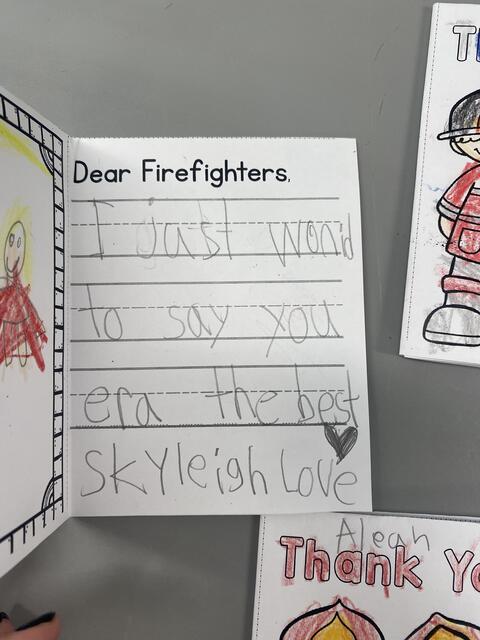 Dear Firefighters,
I just won'd
to say you
era the best
Skyleigh Love
Aleah
Thank Yo
T